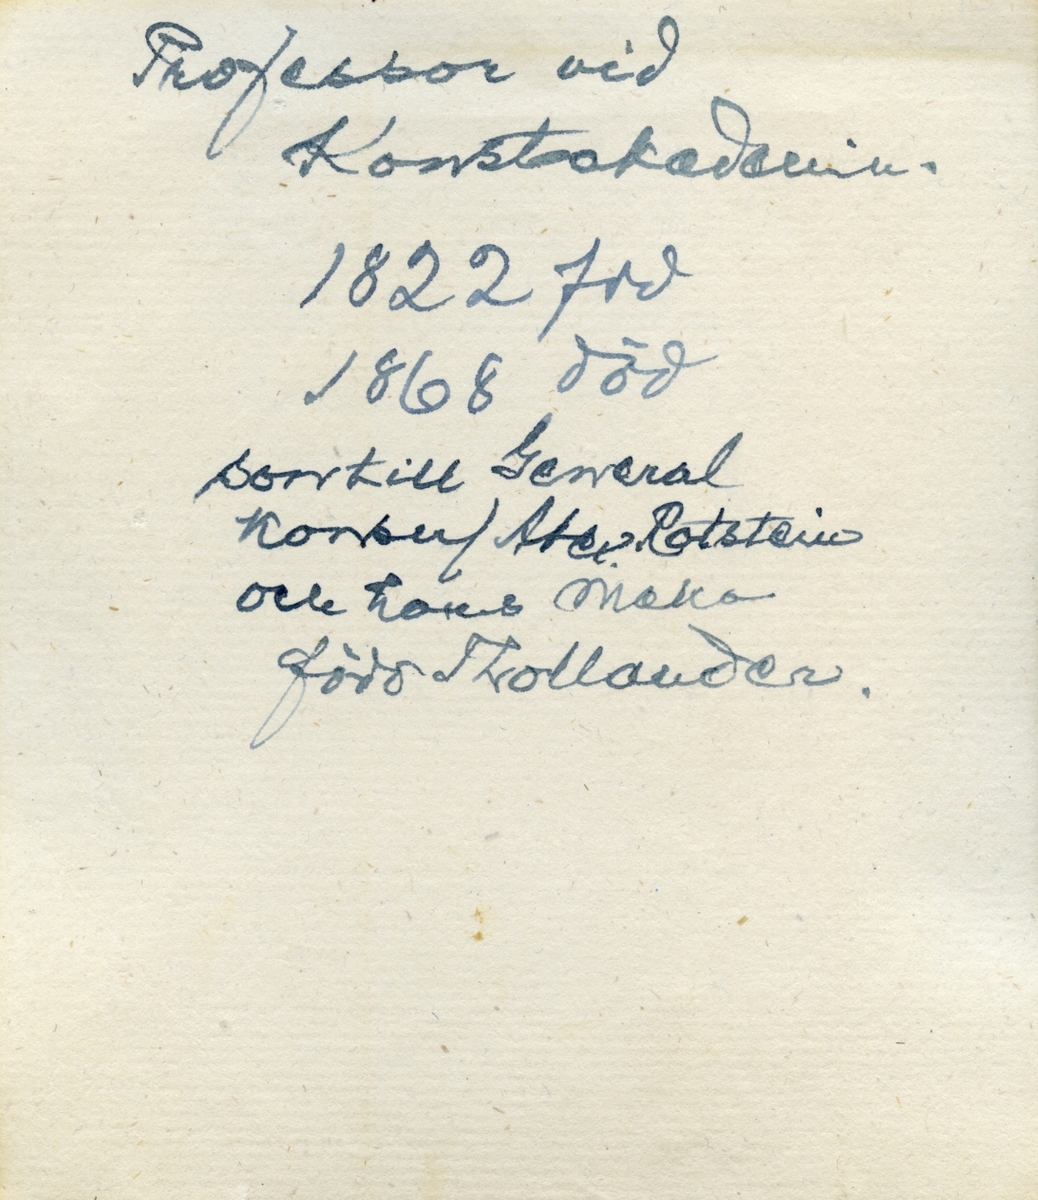 Professor vid
Konstakademin.
1822 född
1868 död
sontill General
Konsul Alex. Rotstein
och hans Maka
född Thollander.